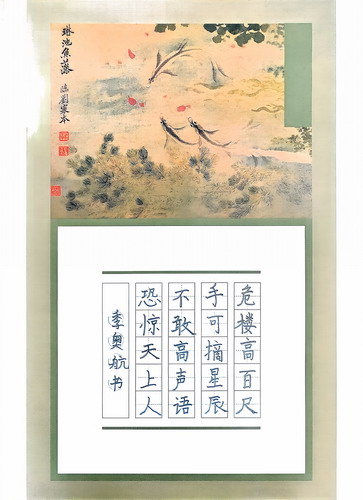 琳池魚藻
臨劉寀本
危楼高百尺
手可摘星辰
不敢高声语
恐惊天上人
李奥航书